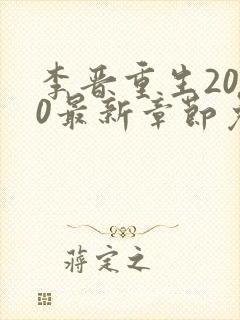 李晋重生20
0最新章节
蒋定之